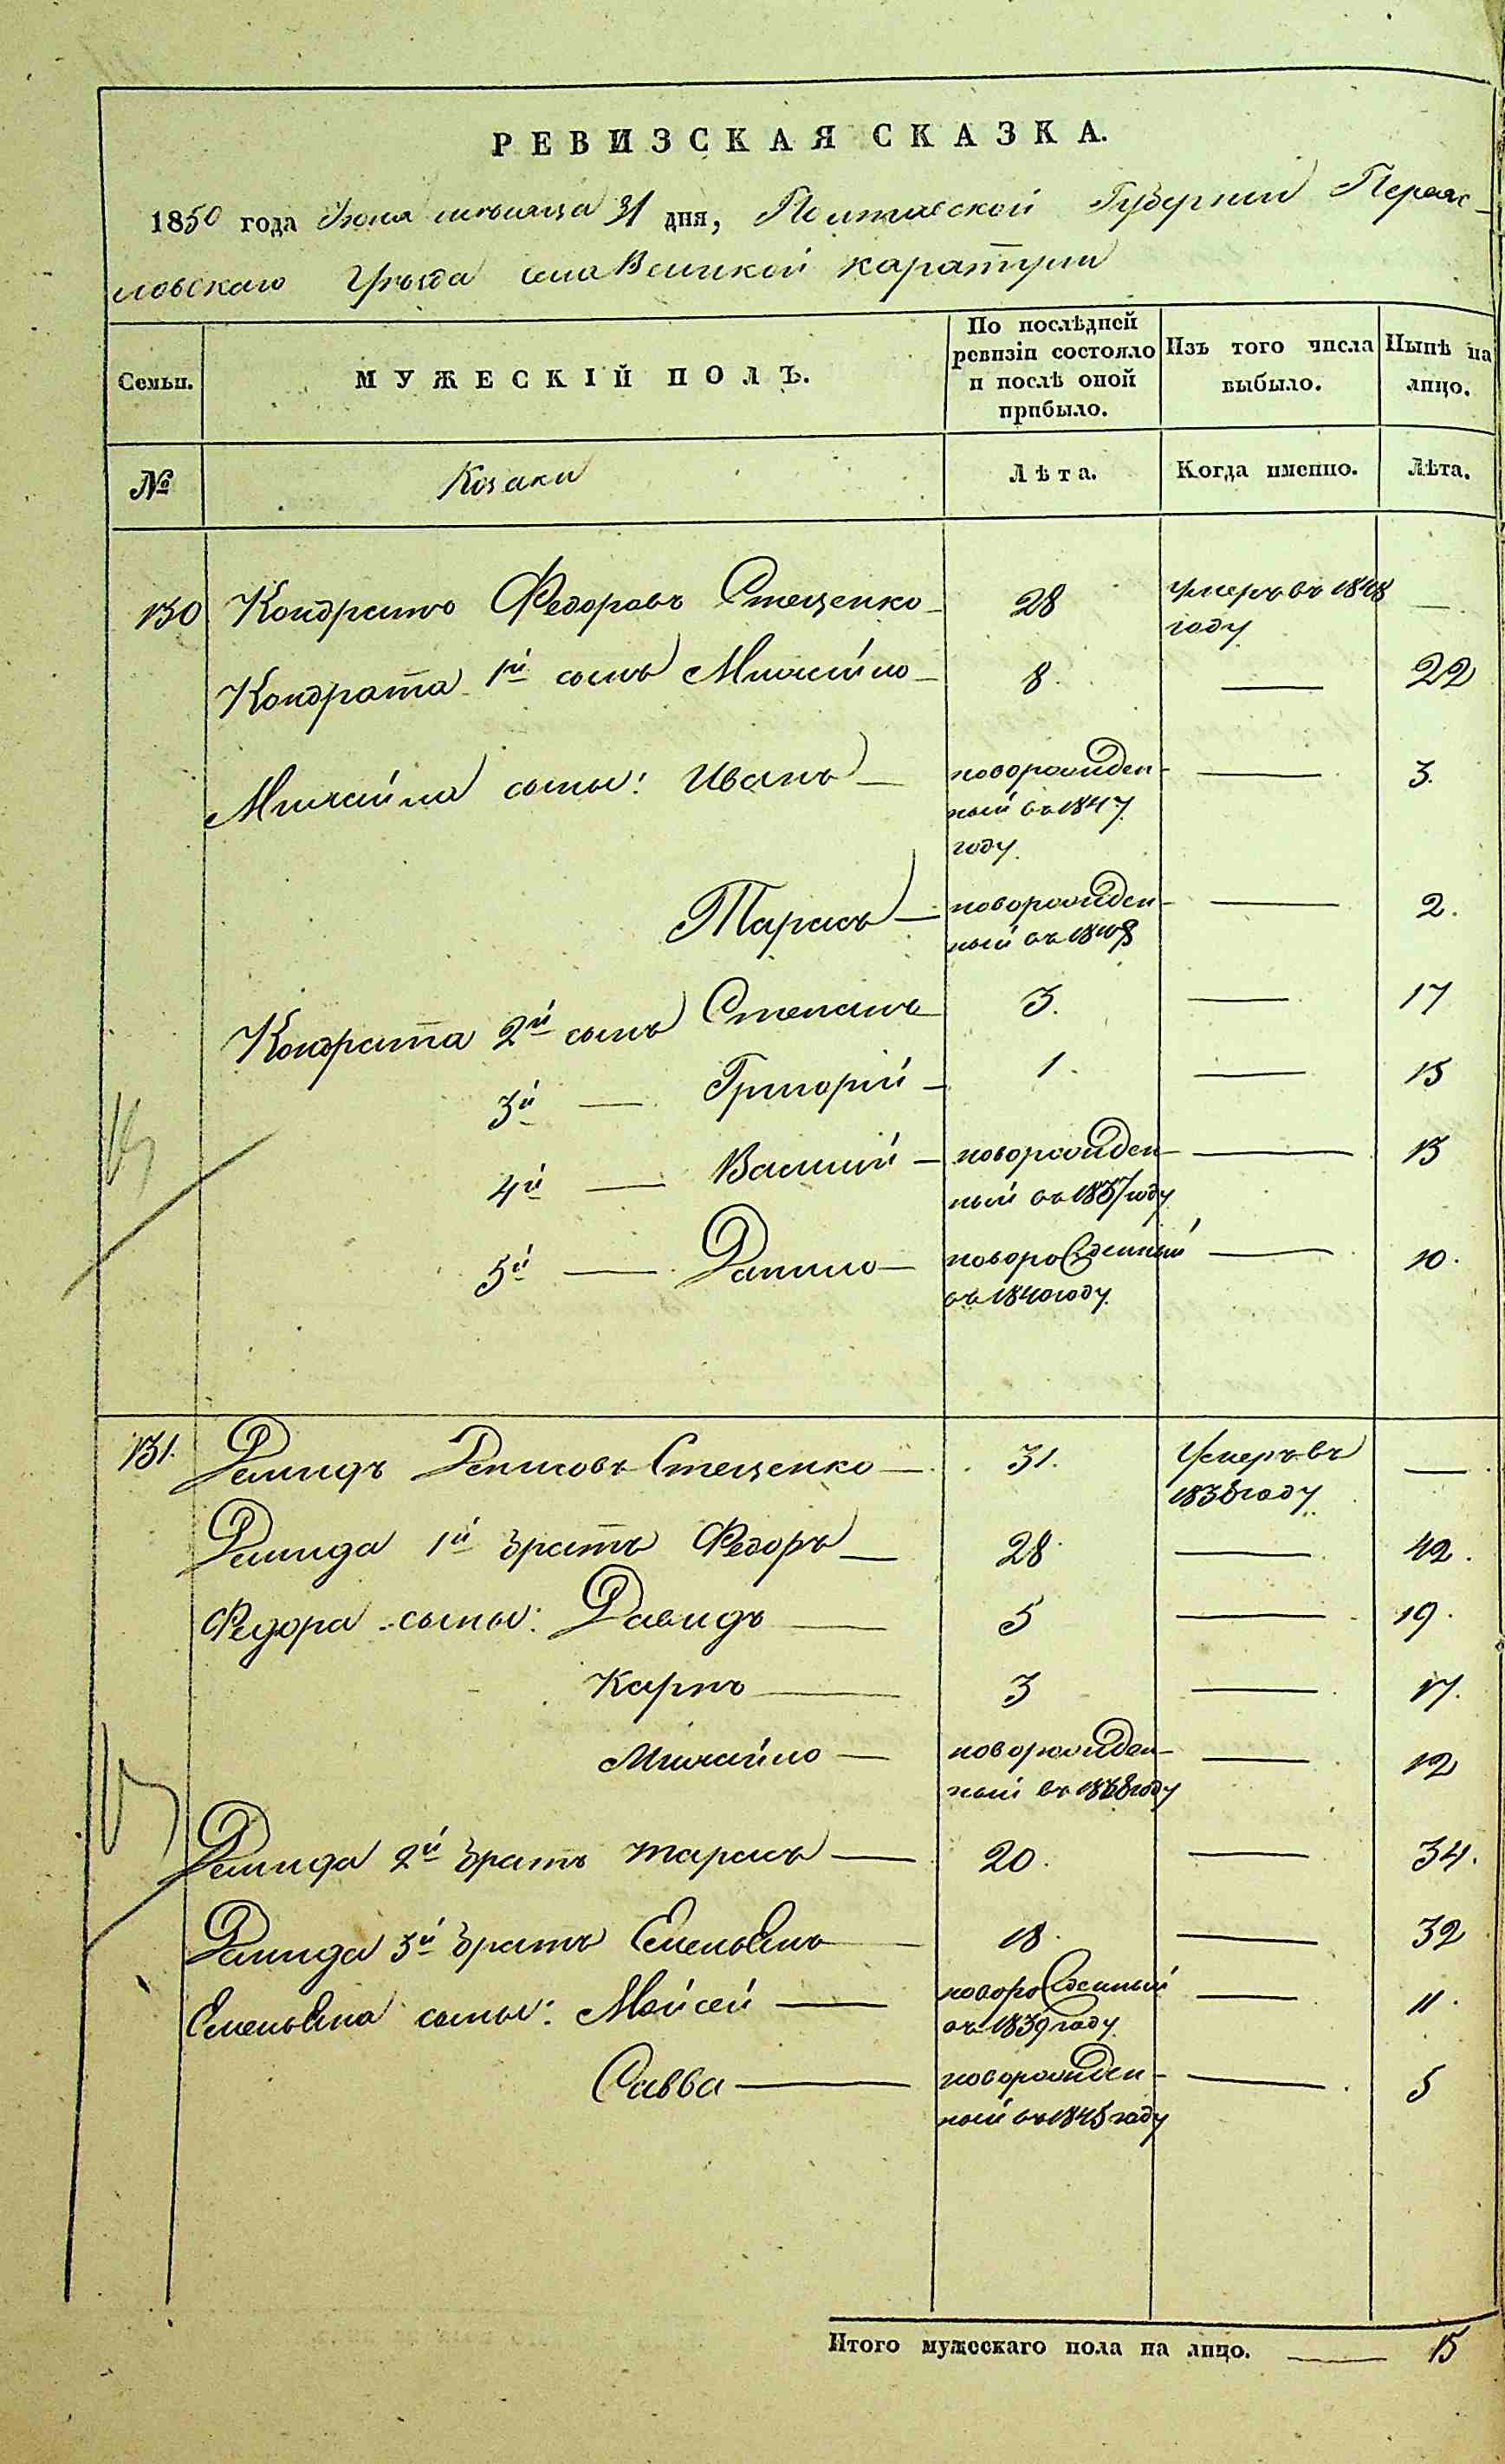 РЕВИЗСКАЯ СКАЗКА.
1850 года Июля мѣсяца 31 дня, Полтавской Губернии Переяс-
ловскаго Уѣзда села Великой каратули
Семьи.
МУЖЕСКІЙ ПОЛЪ.
По послѣдней ревизіи состояло и послѣ оной прибыло.
Изъ того числа выбыло.
Нынѣ на лицо.
№ Козаки Лѣта. Когда именно. Лѣта.
130 Кондратъ Федоровъ Стеценко 28 Умеръ въ 1848 —
году
Кондрата 1й сынъ Михайло 8. — 22
Михайла сыны: Иванъ — новорожден- — 3.
ный въ 1847
году
Тарасъ — новорожден- — 2.
ный въ 1848
Кондрата 2й сынъ Степанъ 3. — 17
3й — Григорій — 1. — 15
4й — Василий — новорожден- — 13
ный въ 1837 году
5й — Данило — новорожденный — 10.
въ 1840 году
131. Демидъ Денисовъ Стеценко — 31. Умеръ въ —
1838 году
Демида 1й братъ Федоръ — 28. — 42.
Федора сыны: Давидъ — 5 — 19.
Карпъ — 3 — 17.
Михайло — новорожден- — 12
ный въ 1838 году
Демида 2й братъ тарасъ — 20. — 34.
Демида 3й братъ Емельянъ — 18. — 32
Емельяна сыны: Мойсей — новорожденный — 11.
въ 1839 году
Савва — новорожден- — 5
ный въ 1845 году
Итого мужескаго пола на лицо. — 15